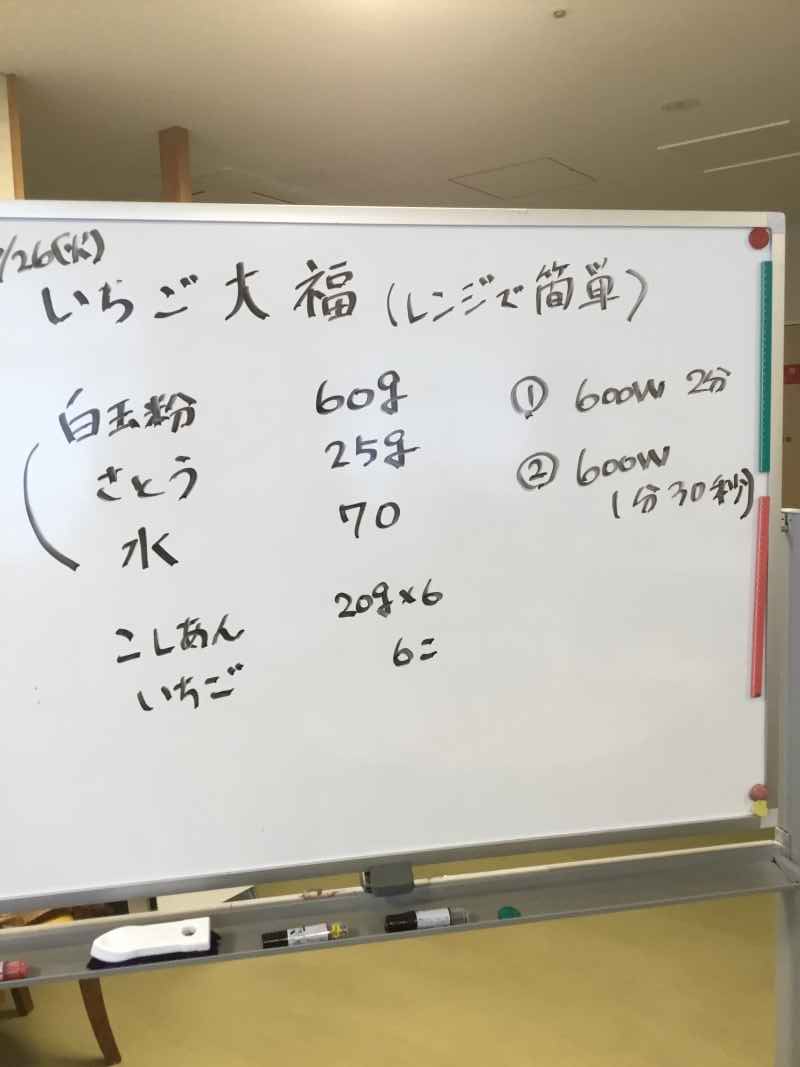 /26(火)
いちご大福(レンジで簡単)
白玉粉 60g
さとう 25g
水 70
こしあん 20g×6
いちご 6こ
① 600W 2分
② 600W
1分30秒